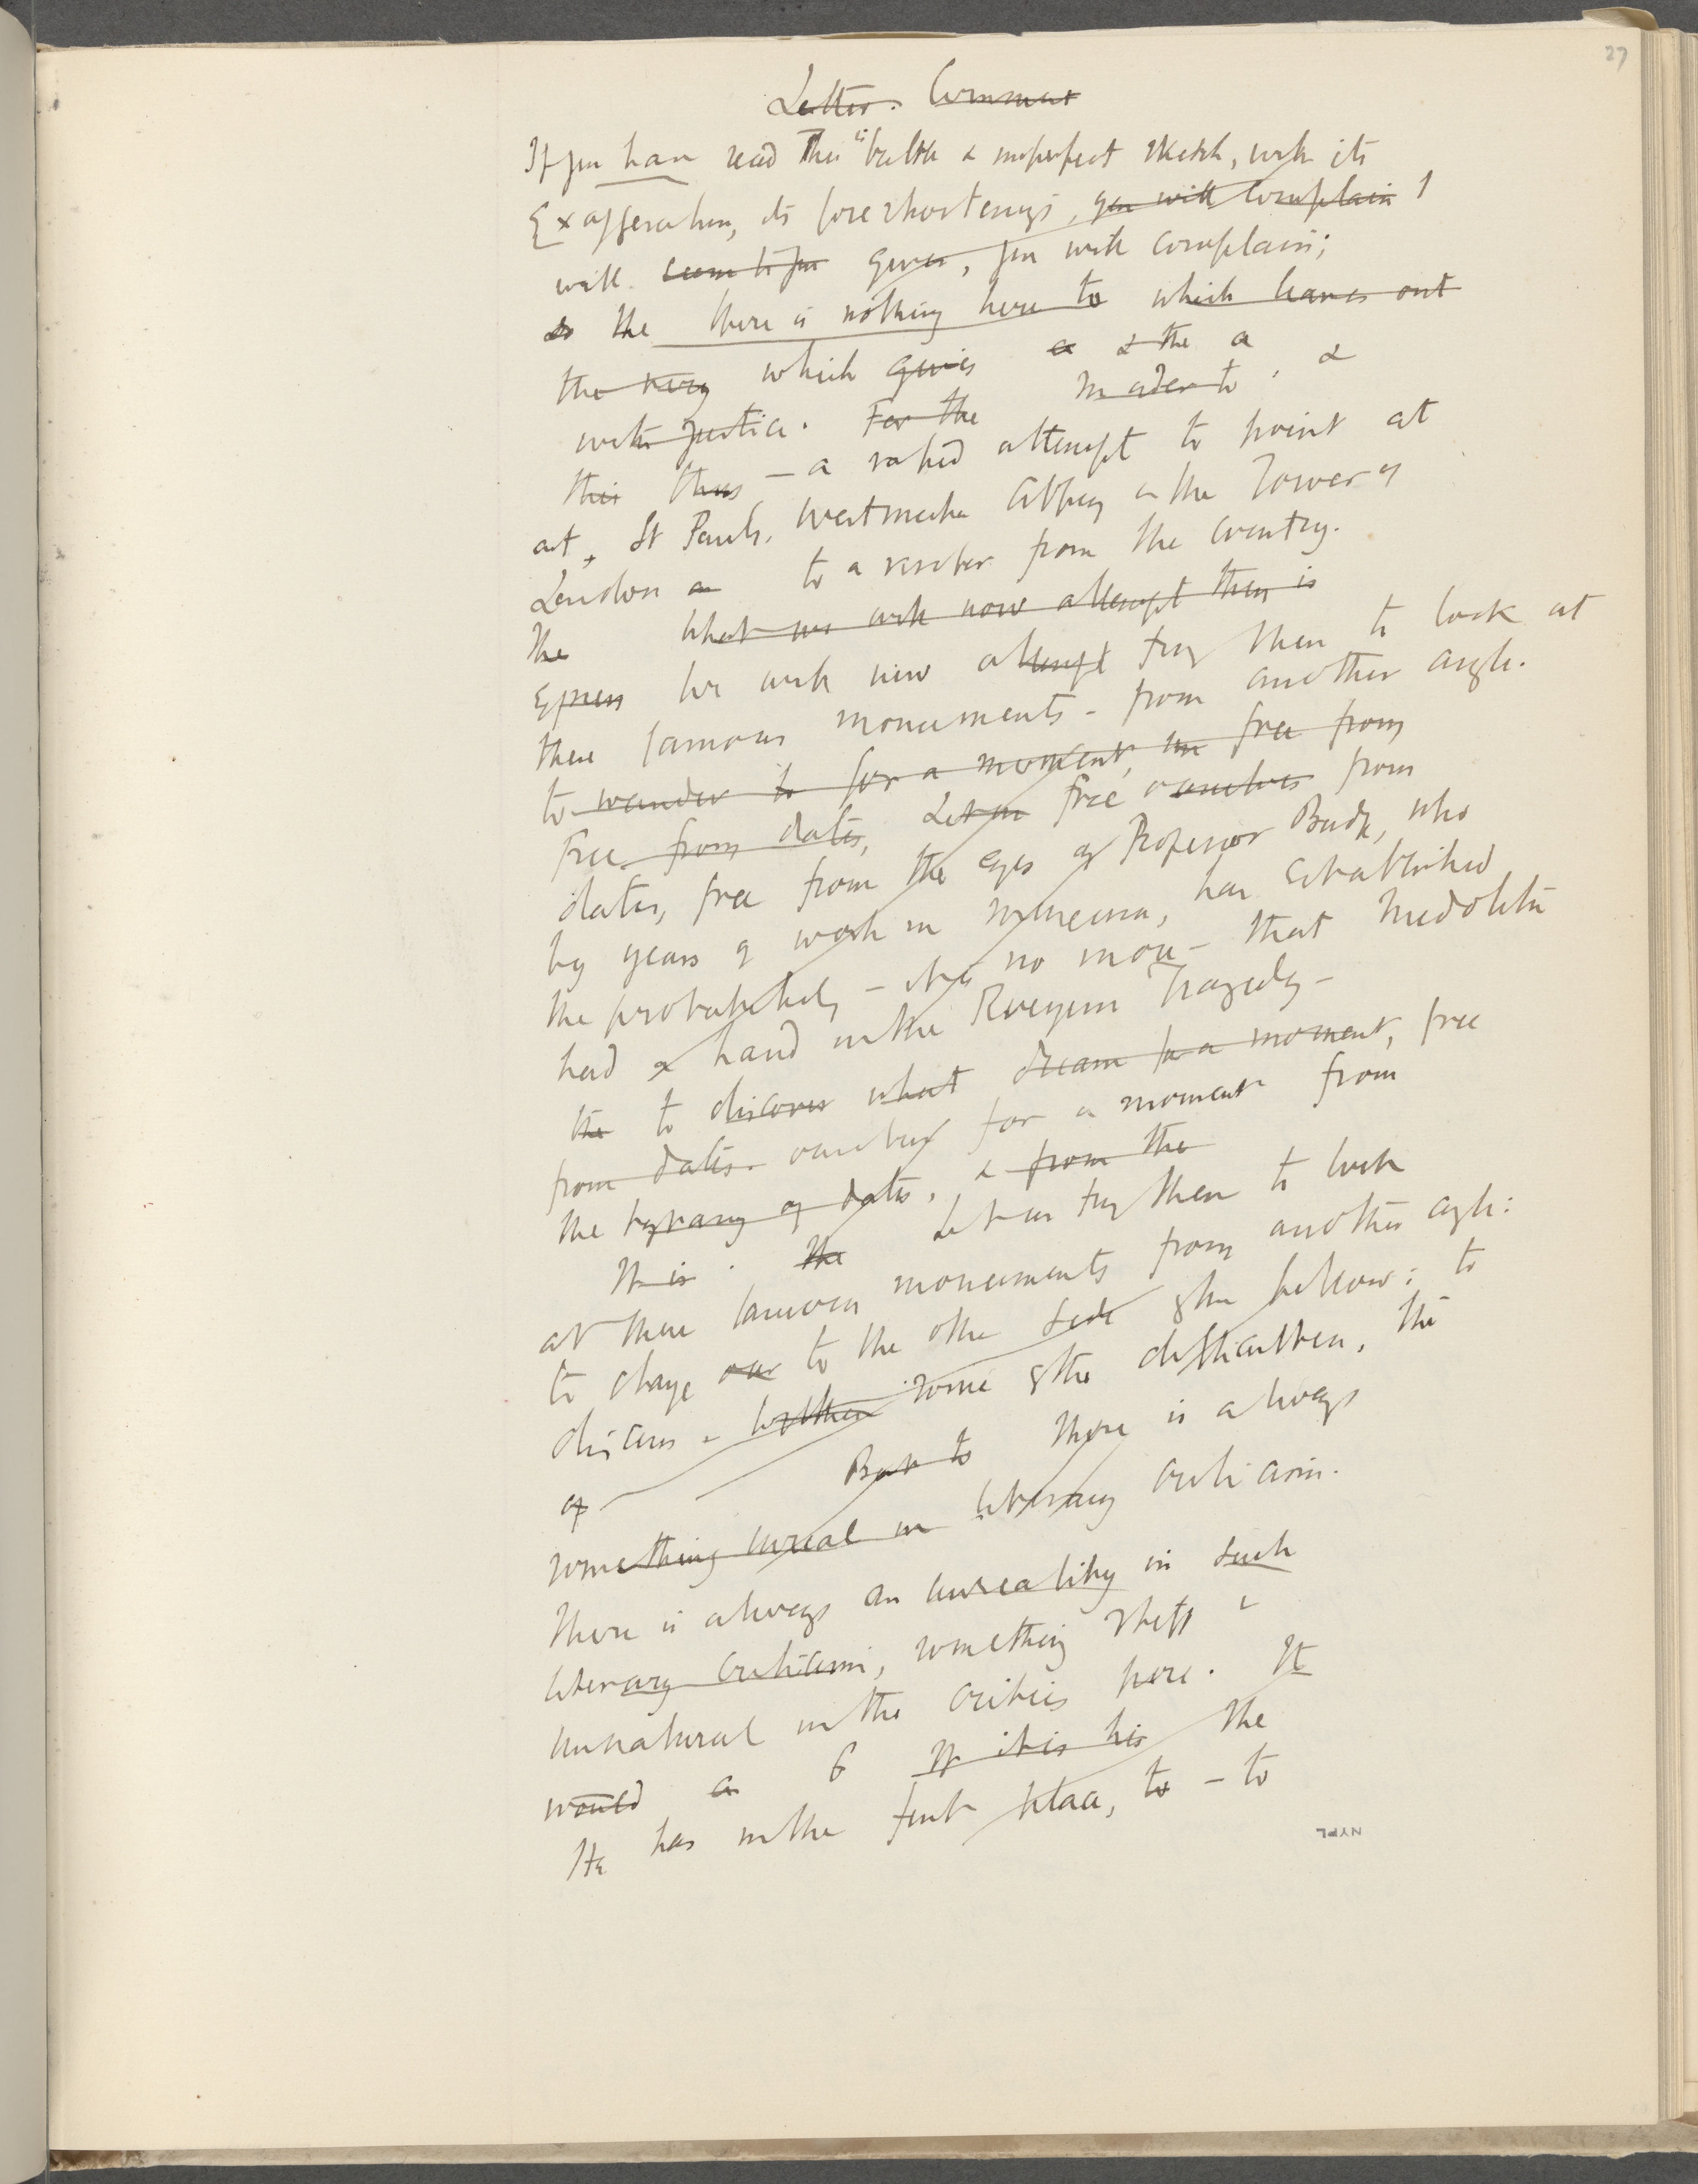 27
Letter. Comment
If you have read this brittle & imperfect sketch, with its
Exaggeration, its foreshortenings, you will complain
will seem to you given, you will complain;
so the there is nothing here to which leaves out
the very which gives a & the a
with justice. For the In order to, &
this thus - a rapid attempt to point at
at, St Pauls, Westminster Abbey or the Tower of
London to a visitor from the country.
The What we will now attempt then is
we will now attempt try then to look at
these famous monuments - from another angle.
to wander to for a moment, free from
Free from dates, Let us free ourselves from
dates, free from the eyes of Professor Budge, who
by years of work in museums, has established
the probability - it is no more - that Middleton
had a hand in the Revengers Tragedy -
the to discover what dream for a moment, free
from dates. ourselves for a moment from
the tyranny of dates, & from the
It is. The Let us try then to look
at these famous monuments from another angle:
to change our to the other side of the pillow: to
discuss some of the difficulties, the
of But to there is always
something unreal in literary criticism.
There is always an unreality in such
literary criticism, something stiff &
unnatural in the critics pose. It
would a If it is his The
He has in the first place, to - to
NYPL